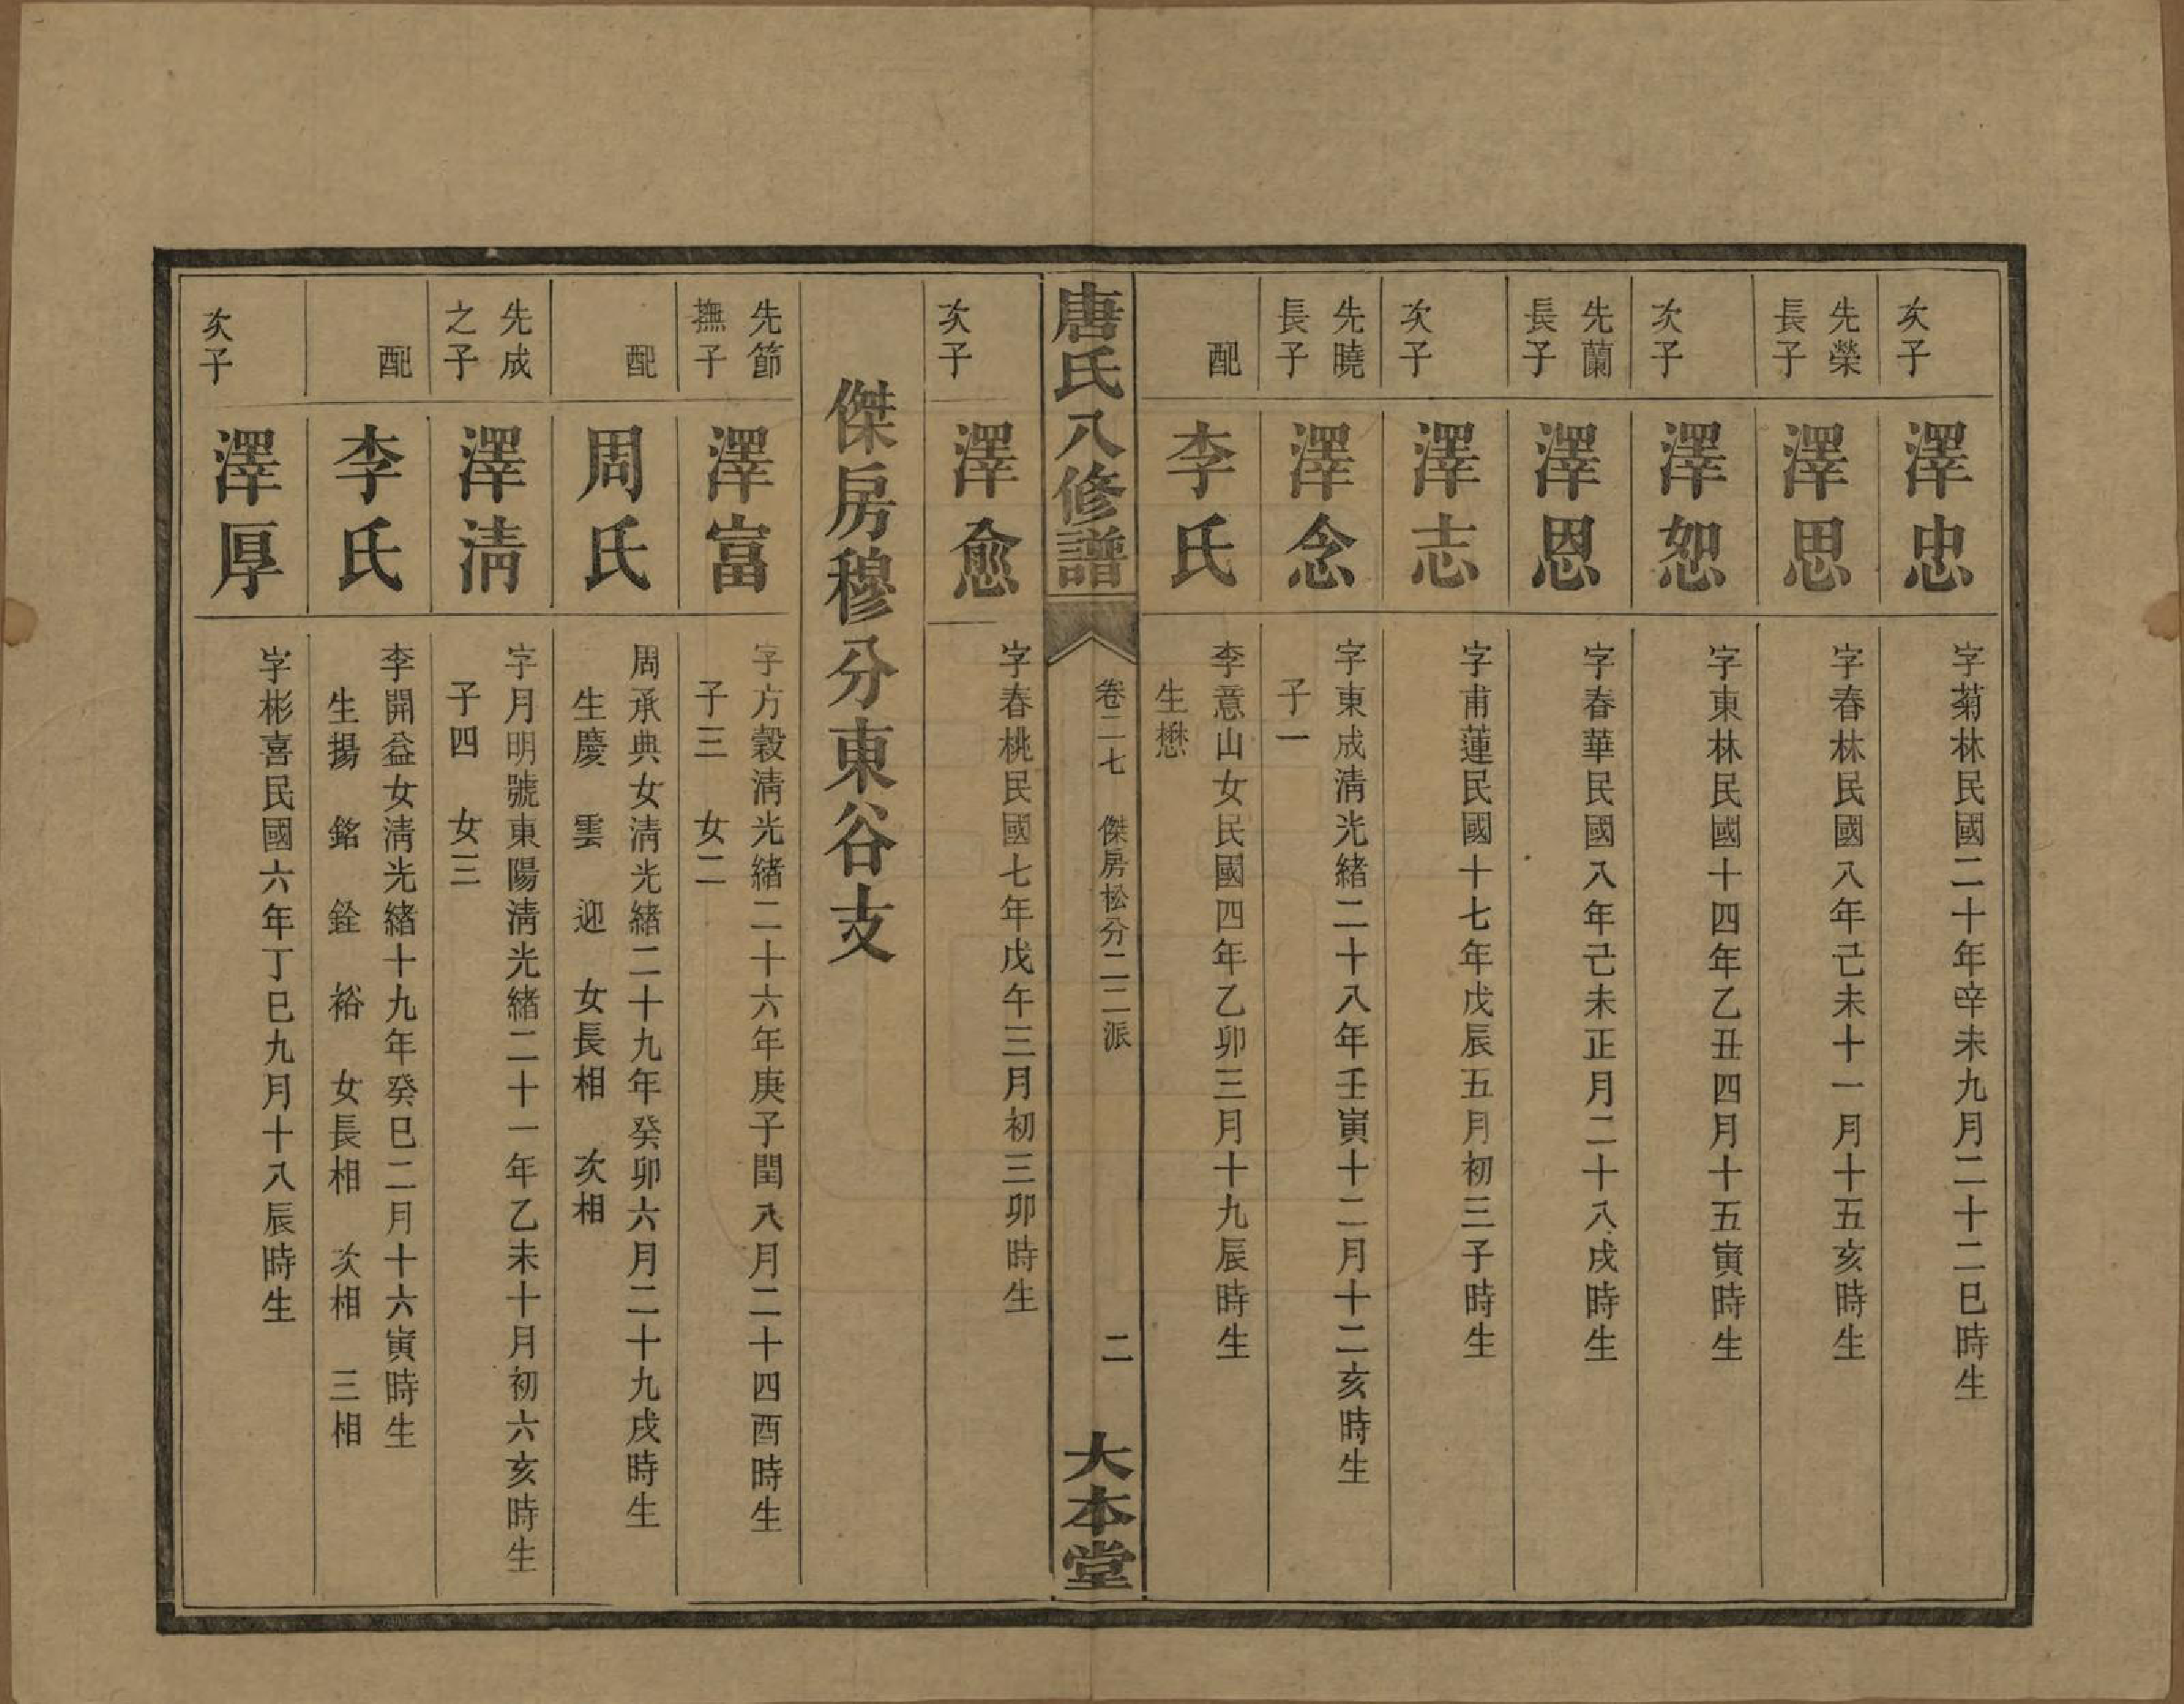 次子
澤忠
字菊林民國二十年辛未九月二十二巳時生
先榮
長子
澤思
字春林民國八年己未十一月十五亥時生
次子
澤恕
字東林民國十四年乙丑四月十五寅時生
先蘭
長子
澤恩
字春華民國八年己未正月二十八戌時生
次子
澤志
字甫蓮民國十七年戊辰五月初三子時生
先曉
長子
澤念
字東成清光緒二十八年壬寅十二月十二亥時生
子一
配
李氏
李意山女民國四年乙卯三月十九辰時生
生懋
唐氏八修譜
卷二七 傑房松分二二派
二
大本堂
次子
澤愈
字春桃民國七年戊午三月初三卯時生
傑房穆分東谷支
先節
撫子
澤富
字方穀清光緒二十六年庚子閏八月二十四酉時生
子三 女二
配
周氏
周承典女清光緒二十九年癸卯六月二十九戌時生
生慶 雲 迎 女長相 次相
先成
之子
澤清
字月明號東陽清光緒二十一年乙未十月初六亥時生
子四 女三
配
李氏
李開益女清光緒十九年癸巳二月十六寅時生
生揚 銘 銓 裕 女長相 次相 三相
次子
澤厚
字彬喜民國六年丁巳九月十八辰時生